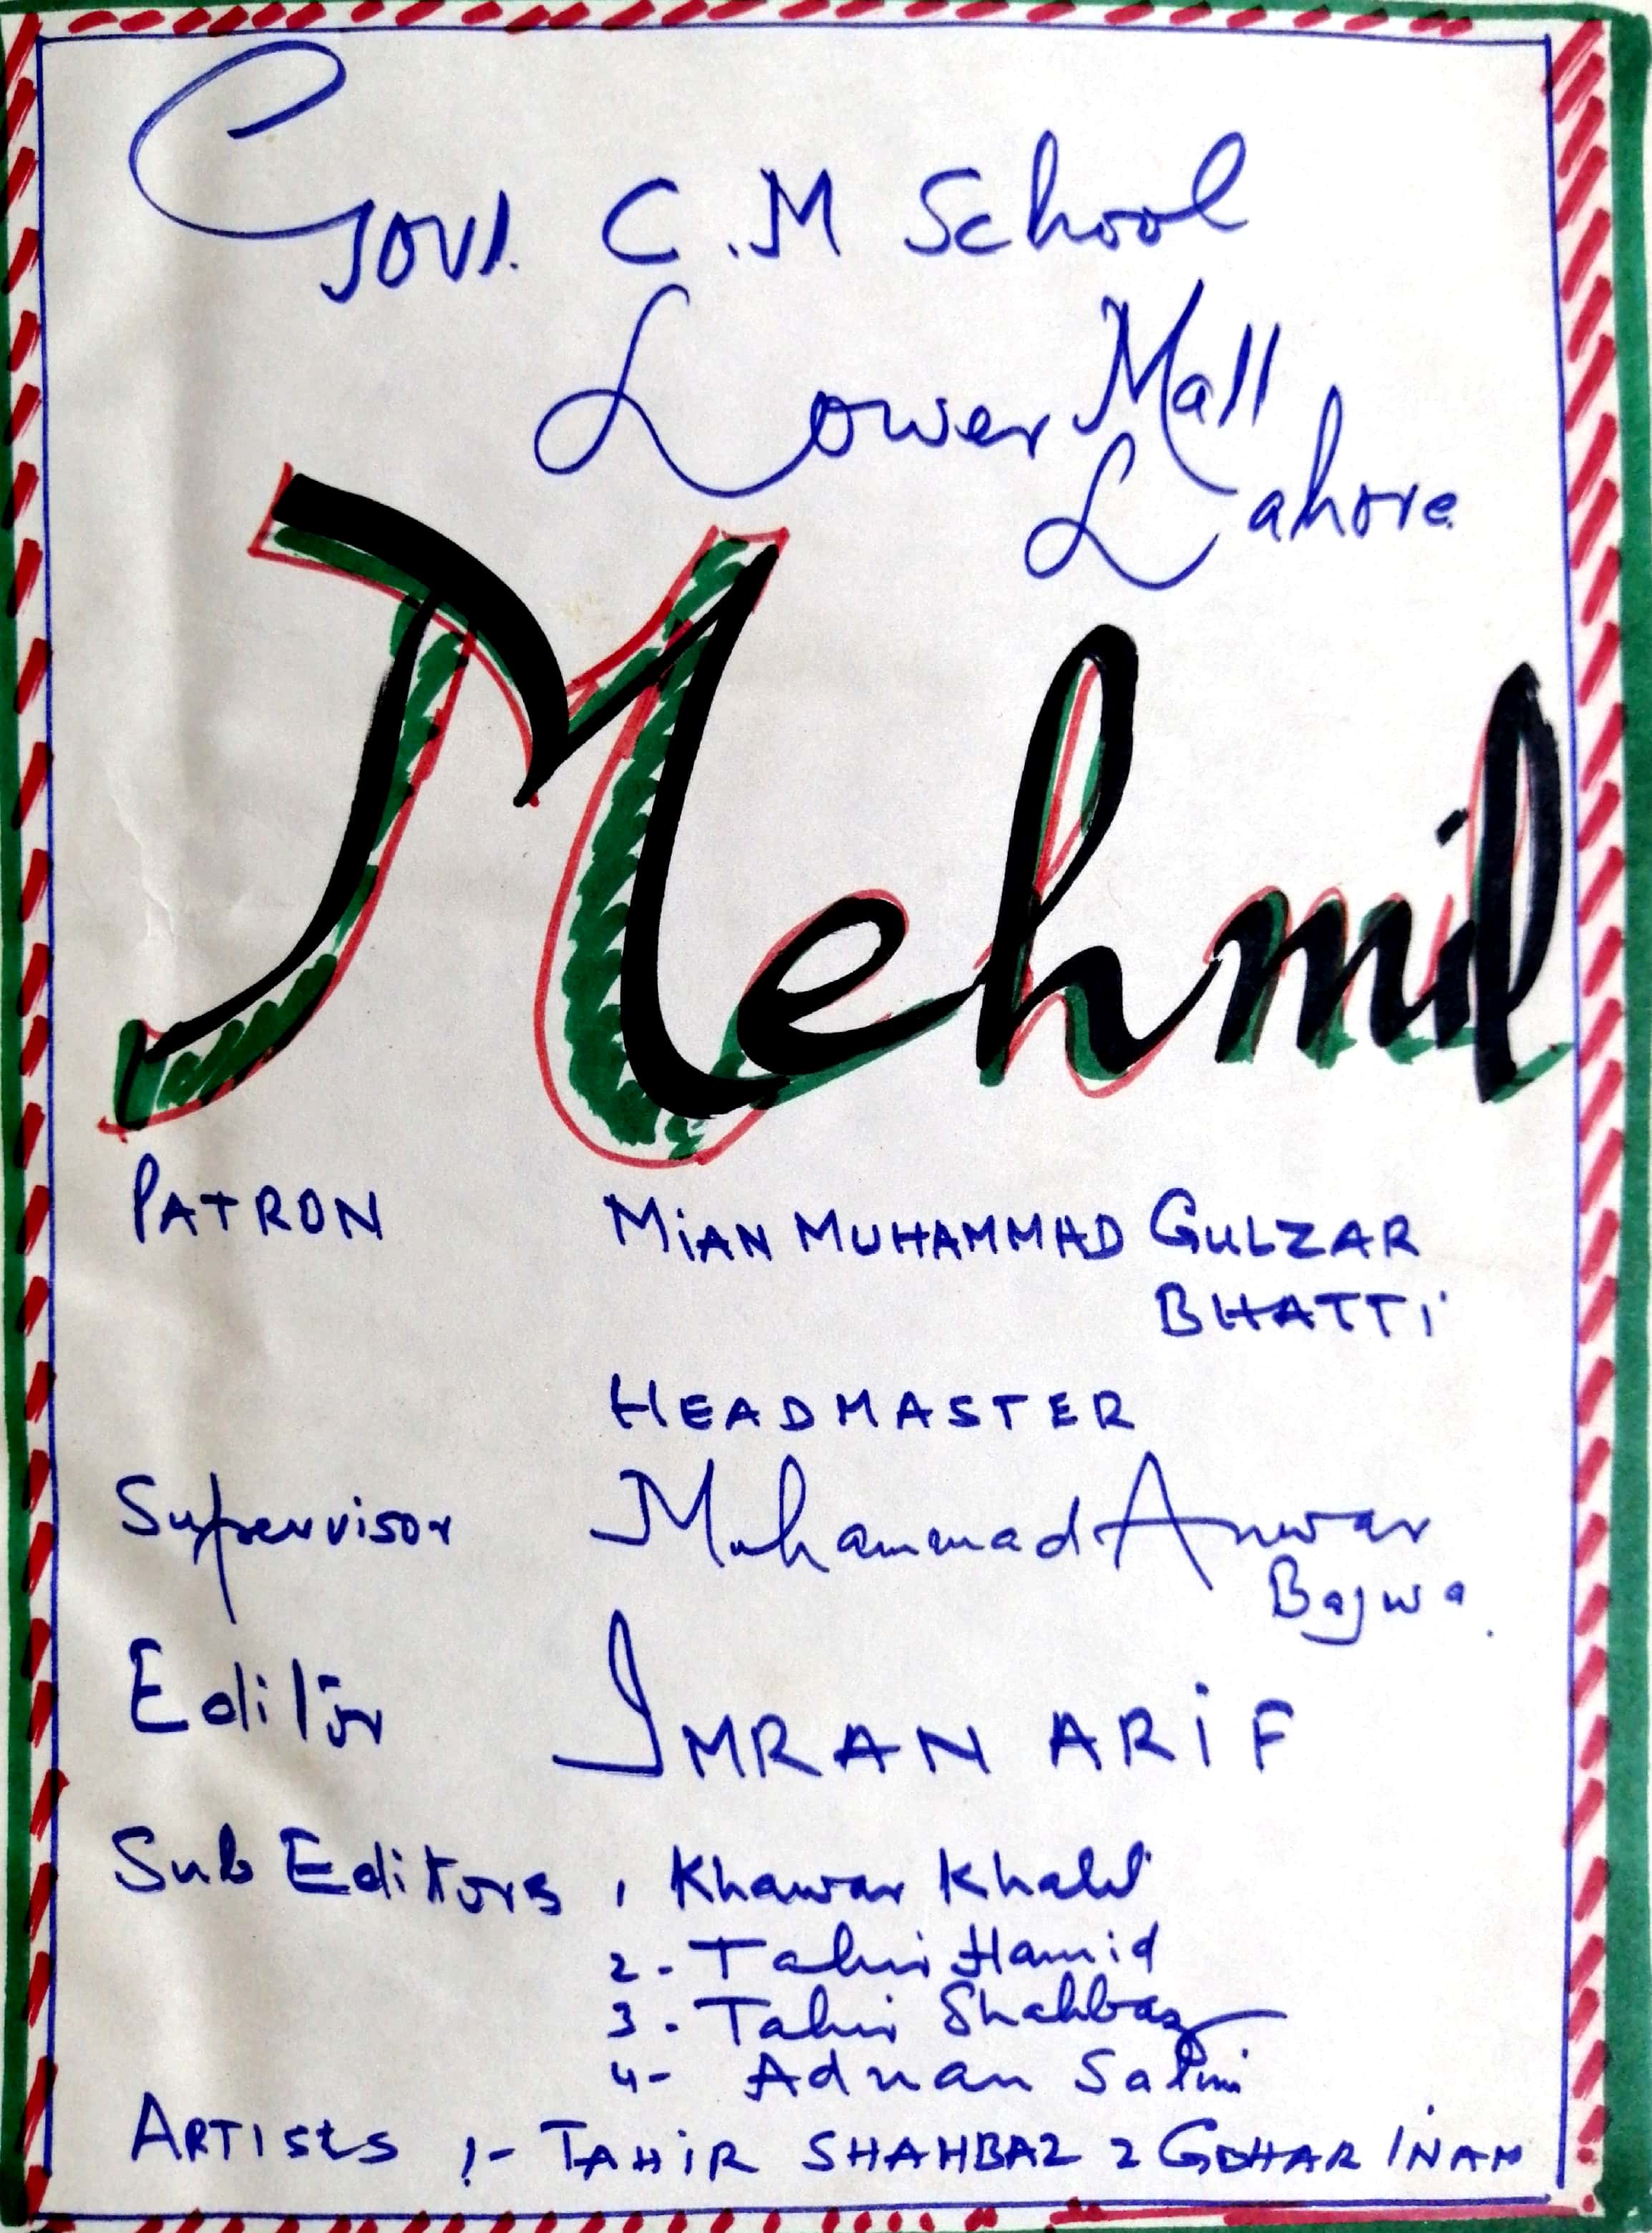 Govt. C.M School
Lower Mall
Lahore
Mehmil
PATRON MiAN MUHAMMAD GULZAR
BHATTi
HEADMASTER
Supervisor Muhammad Anwar
Bajwa.
Editor IMRAN ARiF
Sub Editors 1 Khawar Khalil
2. Tahir Hamid
3. Tahir Shahbaz
4- Adnan Salim
ARTISts 1- TAHiR SHAHBAZ 2 GOHAR INAM